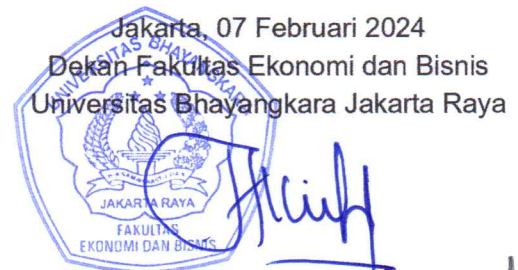 Jakarta, 07 Februari 2024
Dekan Fakultas Ekonomi dan Bisnis
Universitas Bhayangkara Jakarta Raya
UNIVERSITAS BHAYANGKARA
JAKARTA RAYA
FAKULTAS
EKONOMI DAN BISNIS